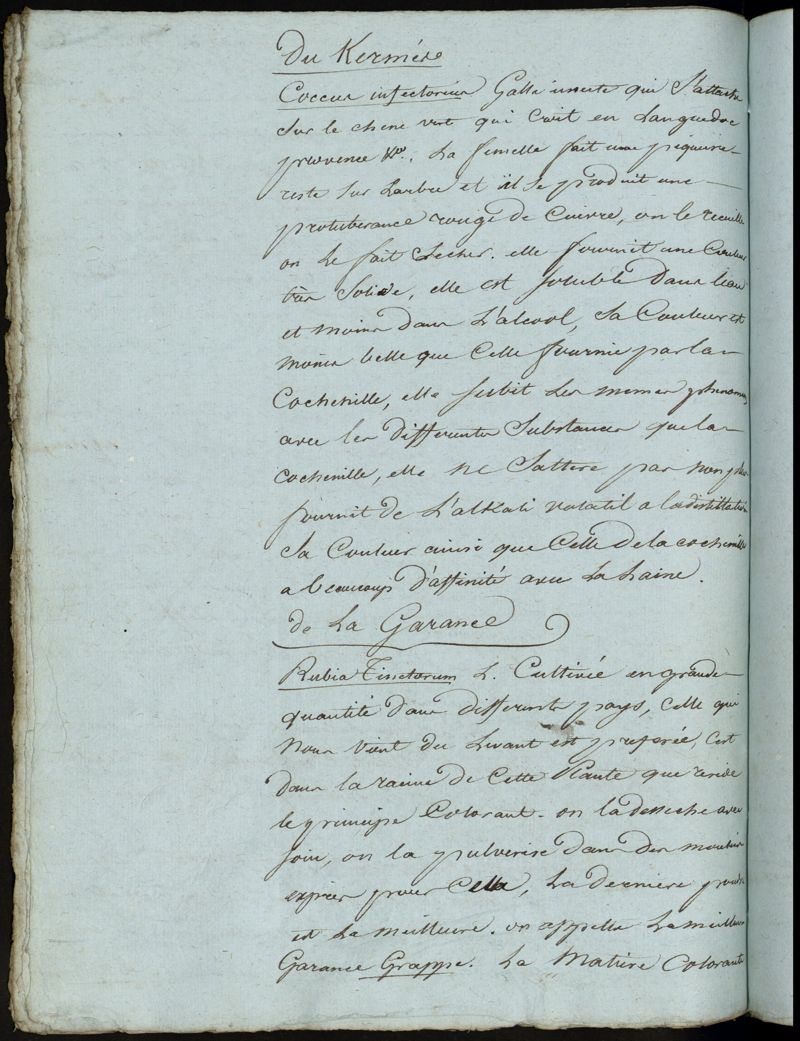 Du Kermès
Coccus infectorius Galle insecte qui s'attache
sur le chene vert qui croit en Languedoc
provence &c. La femelle fait une piquure
reste sur Larbre et il se produit une
protuberance rouge de Cuivre, on le recueille
on Le fait secher. elle fournit une Couleur
très Solide, elle est soluble Dans l'eau
et moins dans L'alcool, sa Couleur est
moins belle que Celle fournie par la
Cochenille, elle subit Les memes phenomenes
avec les differentes Substances que la
cochenille, elle ne Saltere par
fournit de L'alkali volatil a la distillation
Sa Couleur ainsi que Celle De la cochenille
a beaucoup d'affinité avec La Laine.
de La Garance
Rubia Tinctorum L. Cultivée en grande
quantité dans differents pays, Celle qui
Nous Vient du Levant est preferée, C'est
Dans la racine de Cette Plante que reside
le principe Colorant. on la desseche avec
soin, on la pulverise dans des moulins
exprès pour Cella, La derniere poudre
est La meilleure. on appelle La meilleure
Garance Grappe. La Matière Colorante